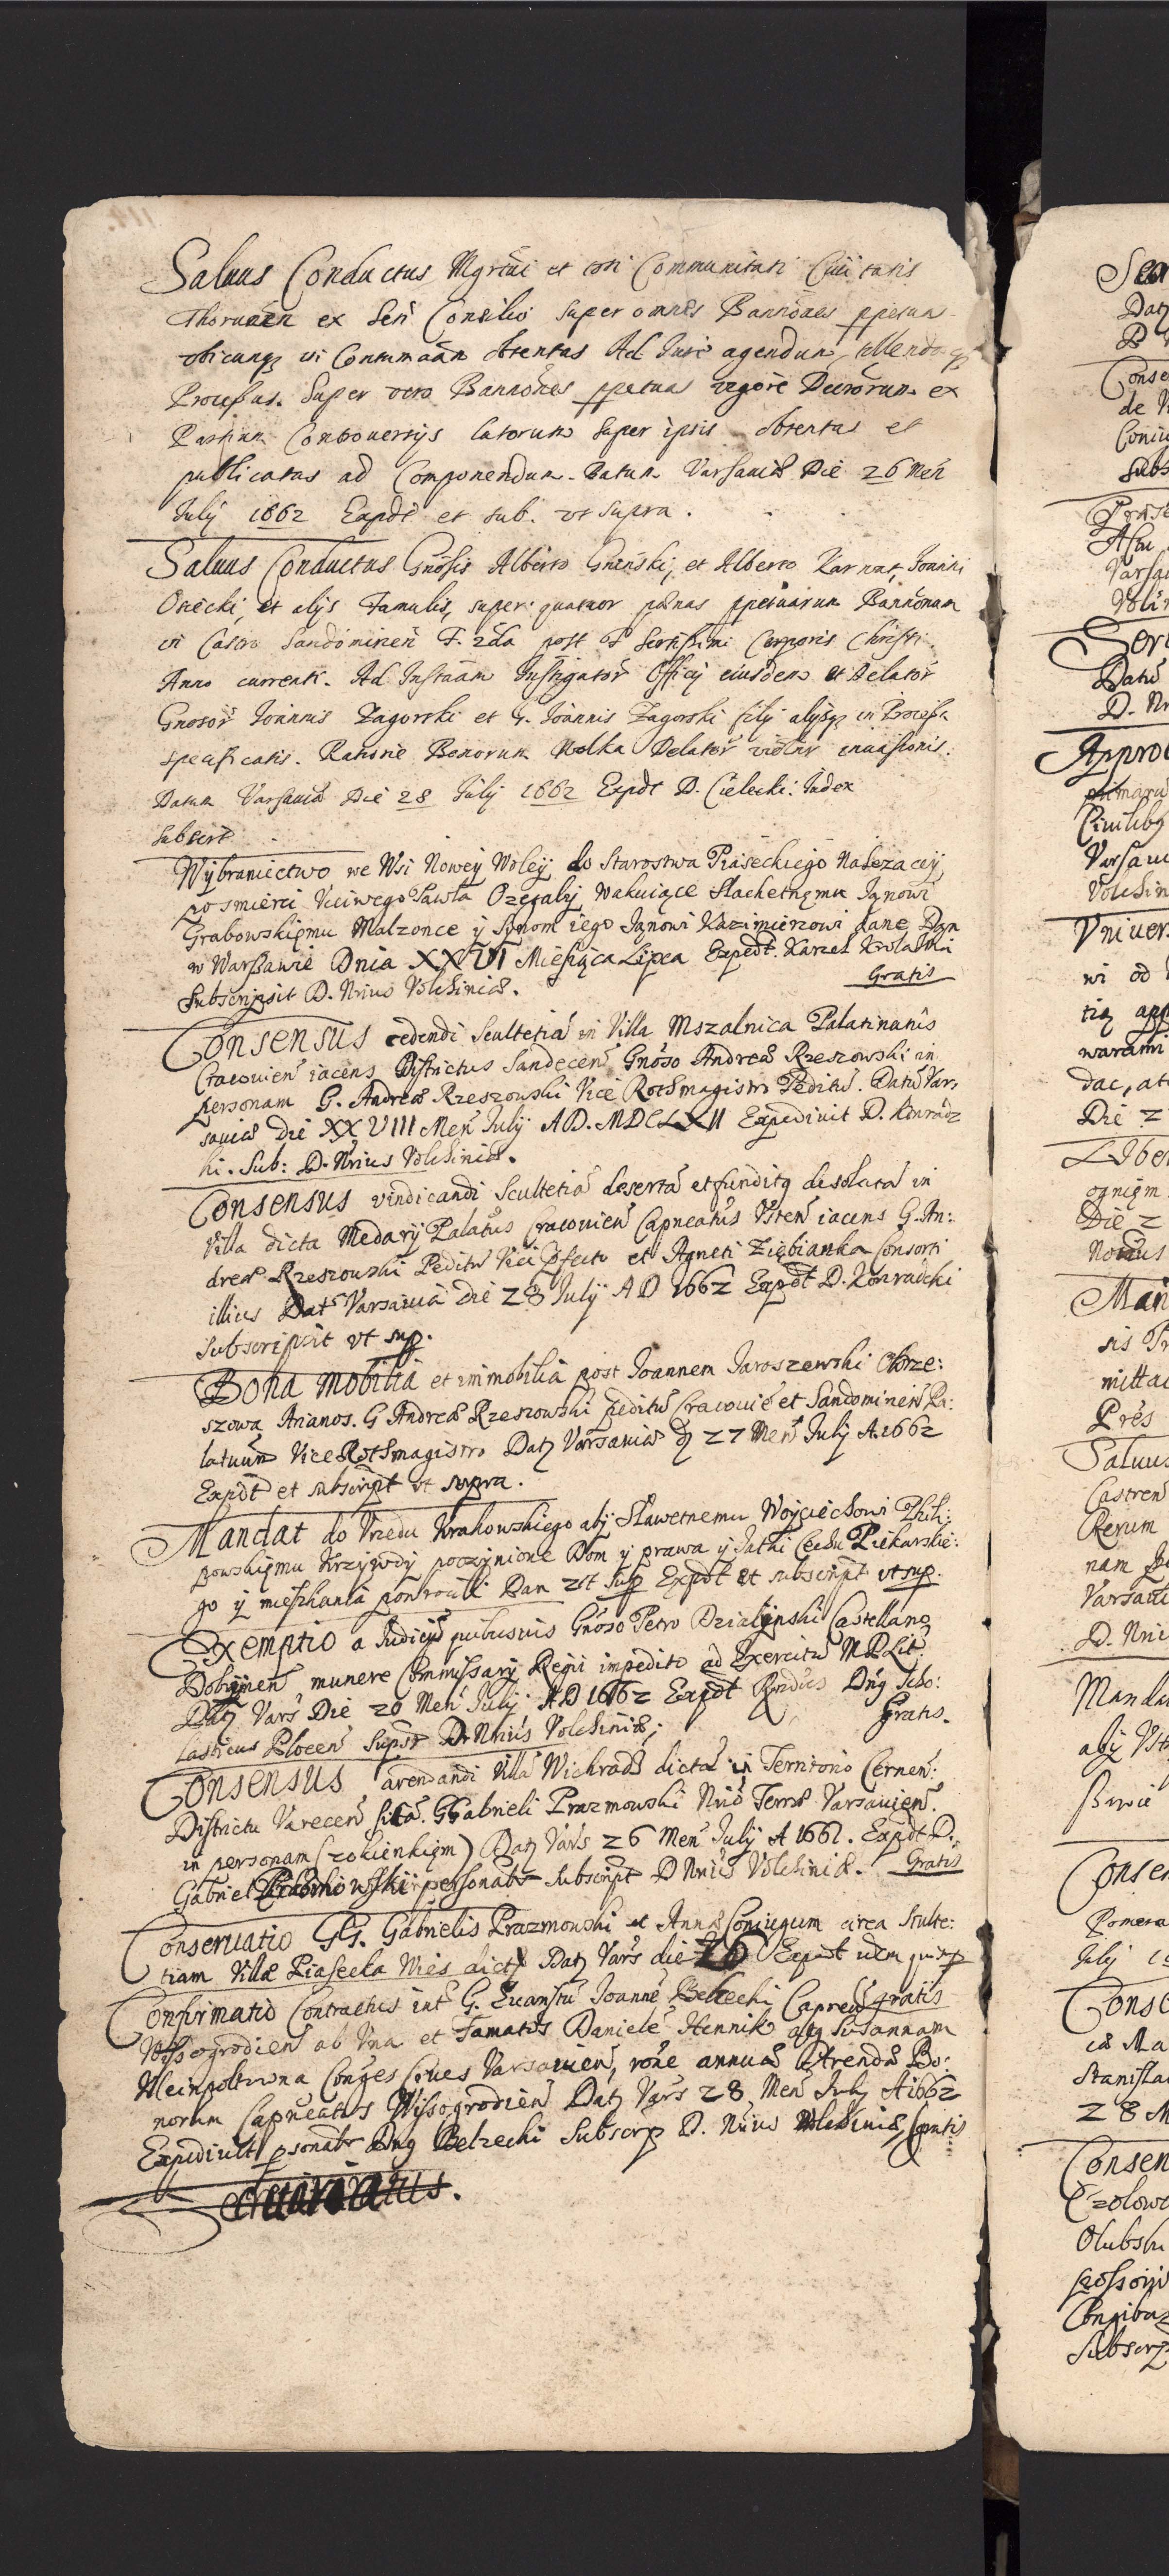 Saluus Conductus Mgrtui et toti Communitati Ciuitatis
Thorunen ex Seri Consilio super omnes Bannōnes ppetuas
vbicunq; in Contumaām obtentas Ad Iure agendum, tollendosq;
Processus. Super vero Bannōnes ppetuas vigore Decrorum ex
Partium Controuersijs latorum super ipsis obtentas et
publicatas ad Componendum. Datum Varsauiæ Die 26 Men
Iulij 1662 Expdt et sub. vt supra.
Saluus Conductus Gnōsis Alberto Gninski, et Alberto Karnat, Ioanni
Osiecki, et alijs Famulis, super quatuor pænas ppetuarum Bannonum
in Castro Sandomirien F. 2da post Sanctissimi Corporis Christi
Anno currenti. Ad Instaām Instigator Officij eiusdem et Delator
Gnosor Ioannis Zagorski et G. Ioannis Zagorski filij alijsq; in Processu
specificatis. Ratione Bonorum Wolka Delator violur inuasionis.
Datum Varsauiæ Die 28 Iulij 1662 Expdt D. Cielecki. Iudex
Subscrt
Wybraniectwo we Wsi Nowey Woley do Starostwa Piaseckiego Nalezacey,
po smierci Vciwego Pawla Ozegaly Wakuiące Slachetnęmu Janowi
Grabowskięmu Malzonce y Synom iego Janowi Kazimierzowi dane Dan
w Warszawie Dnia XXVI Miesiąca Lipca Expedt. Karzel Krolewski
Subscripsit D. Nrius Volchinicæ. Gratis
Consensus cedendi Scultetiā in Villa Mszalnica Palatinatus
Cracouien iacens Districtus Sandecen Gnōso Andreæ Rzeszowski in
personam G. Andreæ Rzeszowski Vice Rothmagistro Peditū. Datū Var,
sauiæ Die XXVIII Men Iulij AD. MDCLXII Expediuit D. Konradz
ki. Sub: D. Nrius Volchiniæ.
Consensus vindicandi Scultetiā desertā et funditq desolatā in
Villa dicta Medary Palatus Cracouien Capneatus Vsten iacens G. An:
dreæ Rzeszowski Peditū Vice Pfecto et Agneti Ziębianka Consorti
illius Dat Varsauia Die 28 Iulij AD 1662 Expdt D. Konradcki
Subscripsit vt sup.
Bona Mobilia et immobilia post Ioannem Iaroszewski Obrze:
szowa Arianos. G Andreæ Rzeszowski peditū Cracouiē et Sandomirien Pa:
latuum Vice Rothmagistro Datz Varsauiæ D 27 Men Iulij A. 1662
Expdt et subscript vt supra.
Mandat do Vrzedu Krakowskiego aby Slawetnemu Woyciechowi Phili:
powskięmu Krzywdy poczynione Dom y prawa y Iatki Cechu Piekarskie:
go y mieszkania powrocili Dan vt sup Expdt et subscript vt sup.
Exemptio a Iudicijs quibusuis Gnōso Petro Dzialynski Castellano
Dobrinen munere Commissarij Regij impedito ad Exercitū M D Lit
Datz Vars Die 20 Men Iulij AD 1662 Expdt Rndus Dng Scho:
lasticus Plocen Supst D Nrius Volchiniæ; Gratis.
Consensus arendandi Villā Wichradz dictā in Territorio Cernen:
Districtu Varecen sitā. G Gabrieli Prazmowski Nriō Terræ Varsauien.
in personam (z okienkięm) Datz Vars 26 Men Iulij A 1662. Expdt D.
Gabriel Prazmowski personatr Subscript D Nrius Volchiniæ. Gratis
Conseruatio GG. Gabrielis Prazmowski et Annæ Coniugum circa Sculte:
tiam Villæ Piasecka Wies dictæ Datz Vars die 26 Expdt idem qui sup
Confirmatio Contractus int G. Euanstū Ioannē Belzecki Capneū gratis
Wissogrodien ab Vna et Famatus Danielē Hennik atq Susannam
Kleinpoltowna Conges Ciues Varsauien, rōne annuæ Arendæ Bo:
norum Capneatus Wissogrodien Datz Vars 28 Men Iulij A 1662
Expediuit psonatr Dng Belzecki Subscrp D. Nrius Volchiniæ Gratis